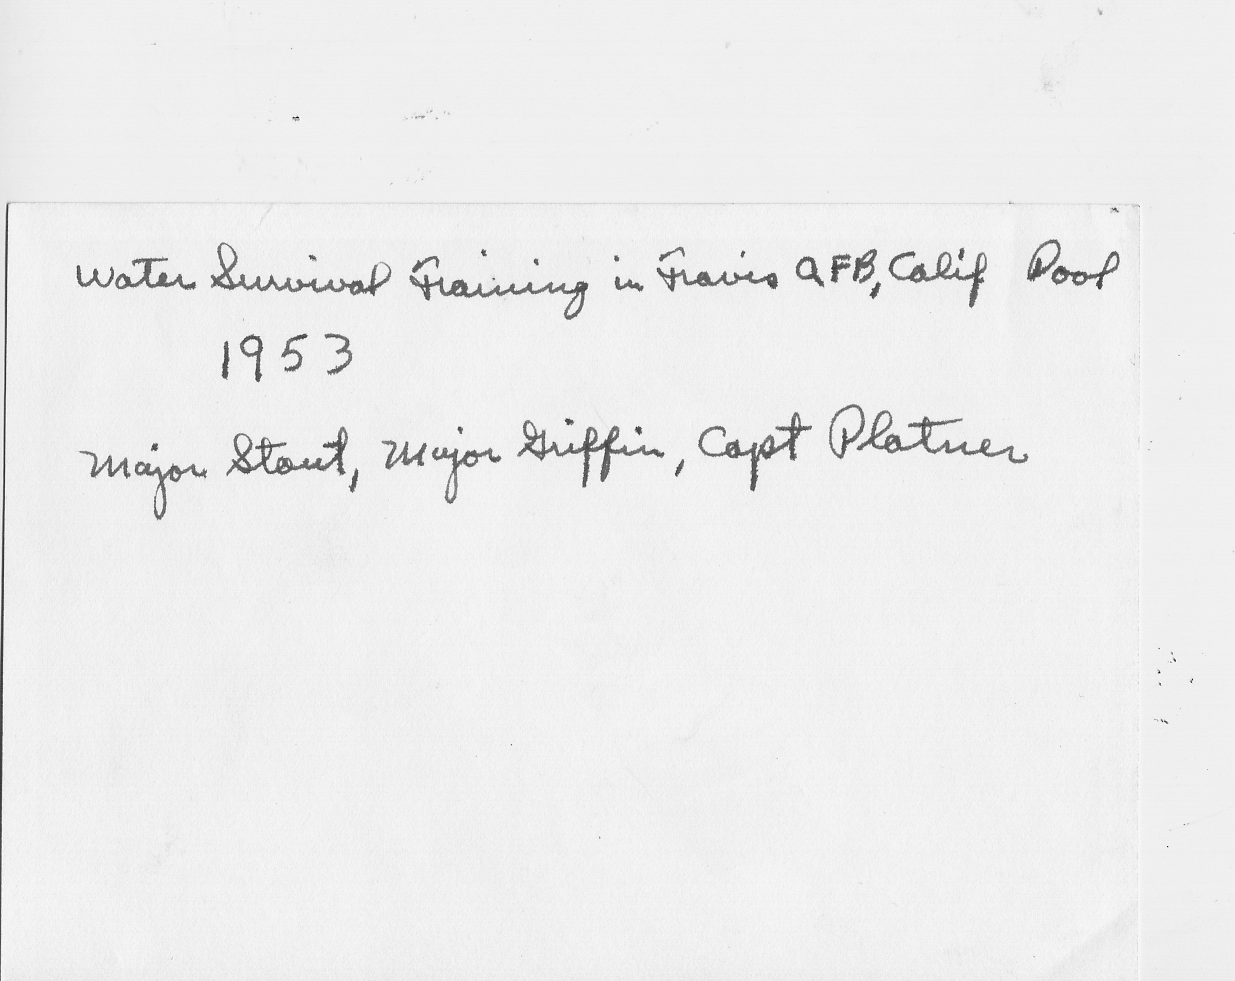 Water Survival Training in Travis AFB, Calif Pool
1953
Major Stout, Major Griffin, Capt Platner